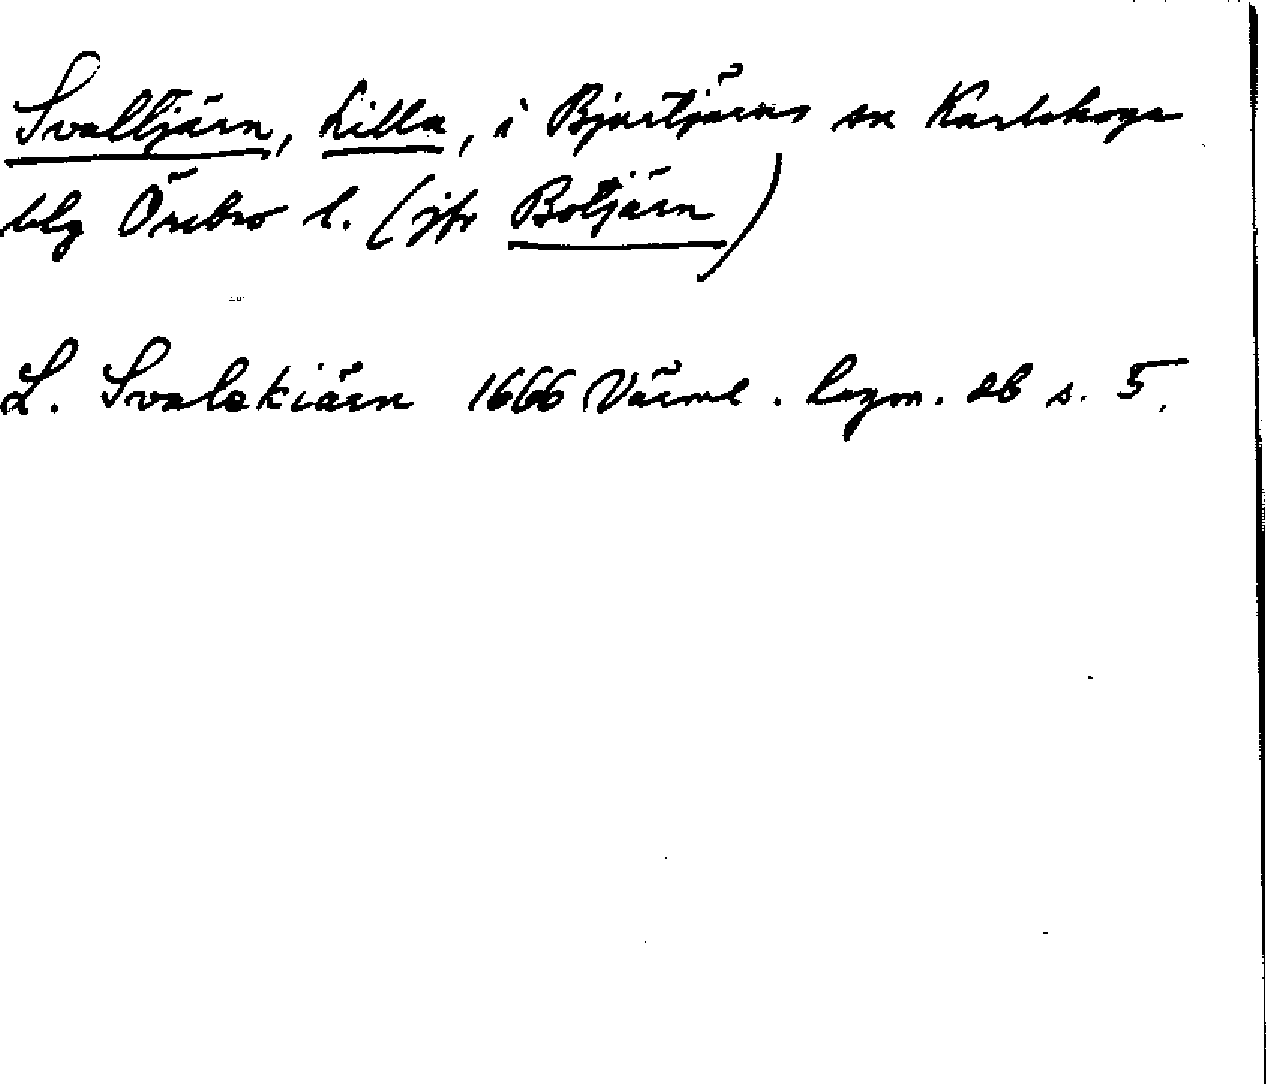 Svaltjärn, Lilla, i Bjurtjärns sn Karlskoga
blg Örebro l. (jfr Boljärn)
L. Svalakiärn 1666 Värml. lagm. db s. 5.